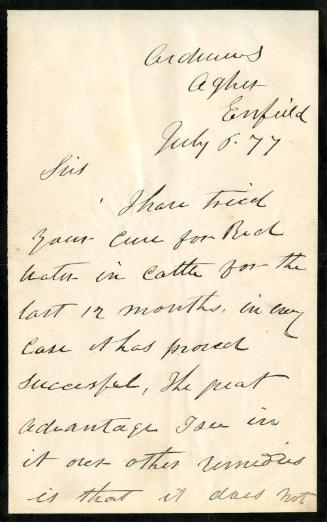 Ardrums
Agher
Enfield
July 6. 77
Sir
I have tried
your cure for Red
water in Cattle for the
last 12 months. in every
case it has proved
succesful, The great
advantage I see in
it over other remedies
is that it does not